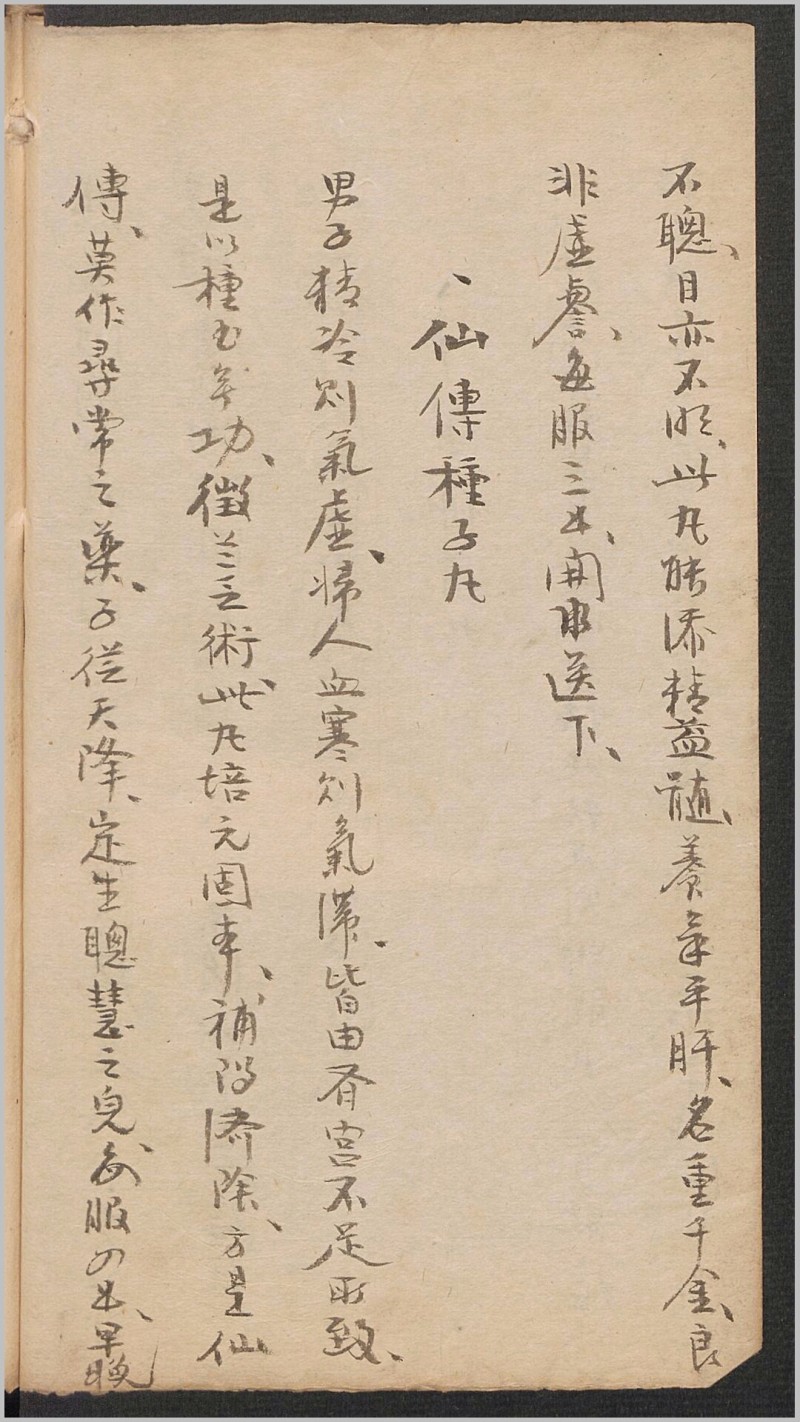 不聰、目亦不明、此丸能添精益髓、養气平肝、名重千金、良
非虛譽、每服三𠃊、開水送下、
、仙傳種子丸
男子精冷則氣虛、婦人血寒則氣滯、皆由腎宮不足所致、
是以種玉無功、徵蘭乏術、此丸培元固本、補陽濟陰、方是仙
傳、莫作尋常之藥、子從天降、定生聰慧之兒、每服四、早晚